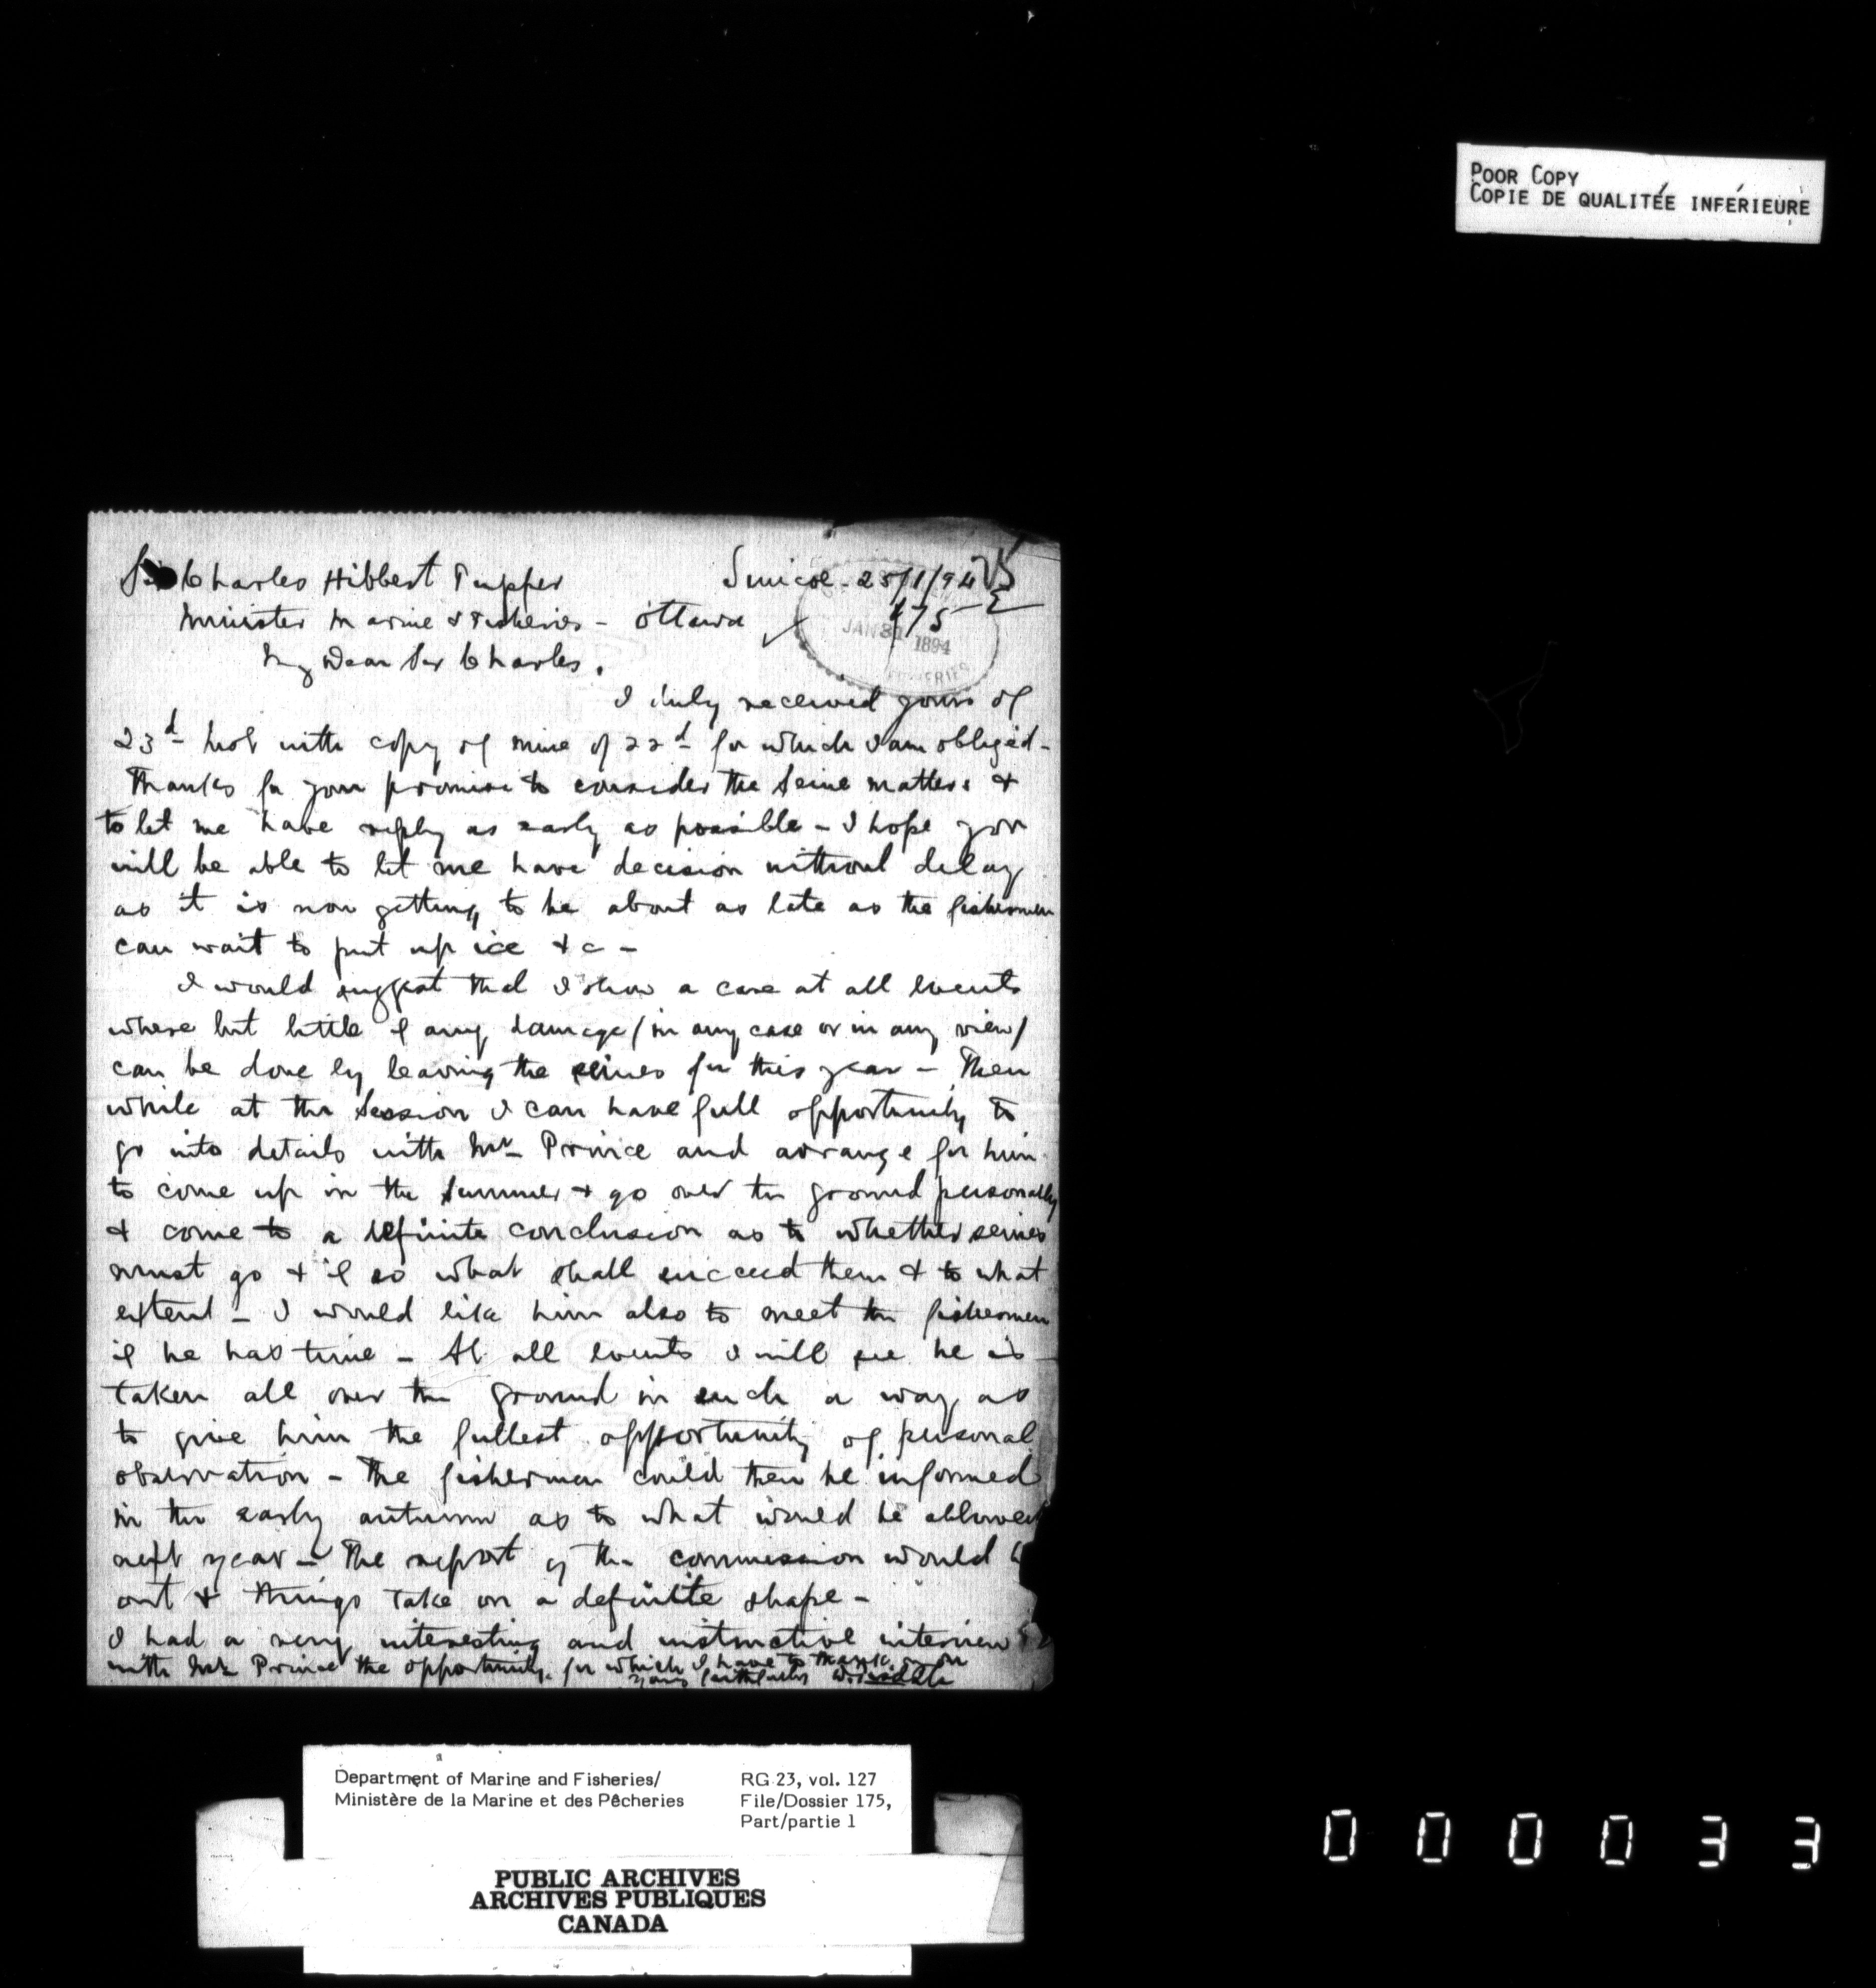 POOR COPY
COPIE DE QUALITÉE INFÉRIEURE
Sir Charles Hibbert Tupper Simcoe - 25/1/94
Minister Marine & Fisheries - Ottawa 175
JAN 31 1894
My Dear Sir Charles.
I duly received yours of
23d inst with copy of mine of 22d for which I am obliged -
Thanks for your promise to consider the seine matters &
to let me have reply as early as possible - I hope you
will be able to let me have decision without delay
as it is now getting to be about as late as the fishermen
can wait to put up ice &c -
I would suggest that I show a case at all events
where but little if any damage /in any case or in any view/
can be done by leaving the seines for this year - Then
while at the Session I can have full opportunity to
go into details with Mr Prince and arrange for him
to come up in the summer & go over the ground personally
& come to a definite conclusion as to whether seines
must go & if so what shall succeed them & to what
extent - I would like him also to meet the fishermen
if he has time - At all events I will see he is
taken all over the ground in such a way as
to give him the fullest opportunity of personal
observation - The fishermen could then be informed
in the early autumn as to what would be allowed
next year - The report of the commission would be
out & things take on a definite shape -
I had a very interesting and instructive interview
with Mr Prince the opportunity for which I have to thank you
Yours faithfully
Department of Marine and Fisheries/ RG 23, vol. 127
Ministère de la Marine et des Pêcheries File/Dossier 175,
Part/partie 1
PUBLIC ARCHIVES
ARCHIVES PUBLIQUES
CANADA
0 0 0 0 3 3